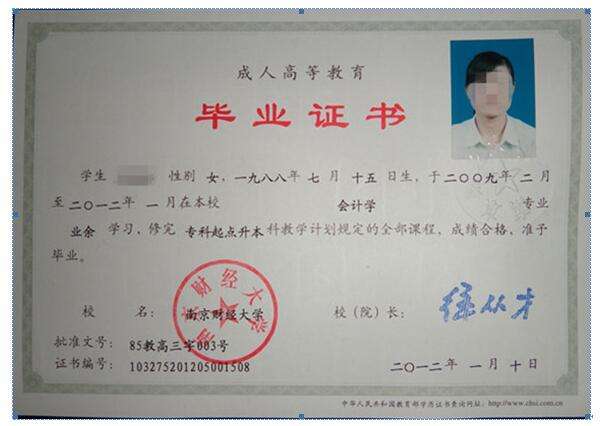 成人高等教育
毕业证书
学生 性别 女，一九八八年 七 月 十五日生，于二〇〇九年 二月
至二〇一二年 一月在本校 会计学 专业
业余 学习，修完 专科起点升本科教学计划规定的全部课程，成绩合格，准予
毕业。
校 名：南京财经大学 校（院）长：徐从才
批准文号：85教高三字003号
证书编号：103275201205001508 二〇一二年 一 月 十 日
南京财经大学
中华人民共和国教育部学历证书查询网址：http://www.chsi.com.cn